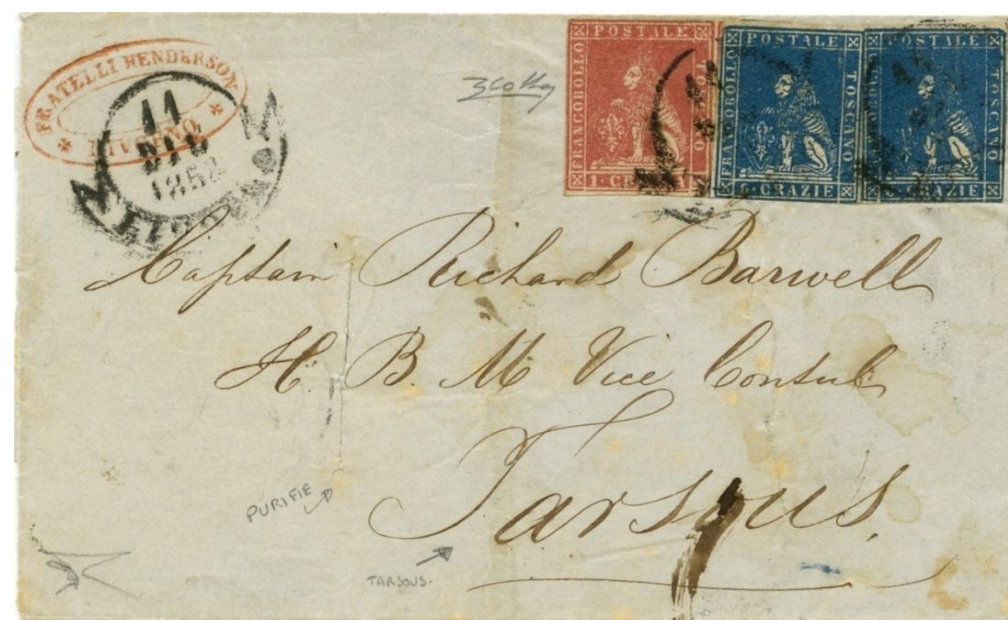 FRATELLI HENDERSON
LIVORNO
11
DIC
185
LIVORNO
FRANCOBOLLO POSTALE TOSCANO
1 CRAZIA
FRANCOBOLLO POSTALE TOSCANO
6 CRAZIE
FRANCOBOLLO POSTALE TOSCANO
CRAZIE
Captain Richard Barwell
H. B. M Vice Consul
Tarsous.
PURIFIE
TARSOUS.